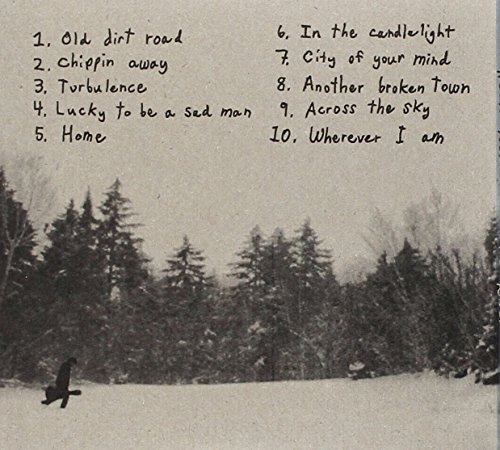 1. Old dirt road
2. Chippin away
3. Turbulence
4. Lucky to be a sad man
5. Home
6. In the candlelight
7. City of your mind
8. Another broken town
9. Across the sky
10. Wherever I am